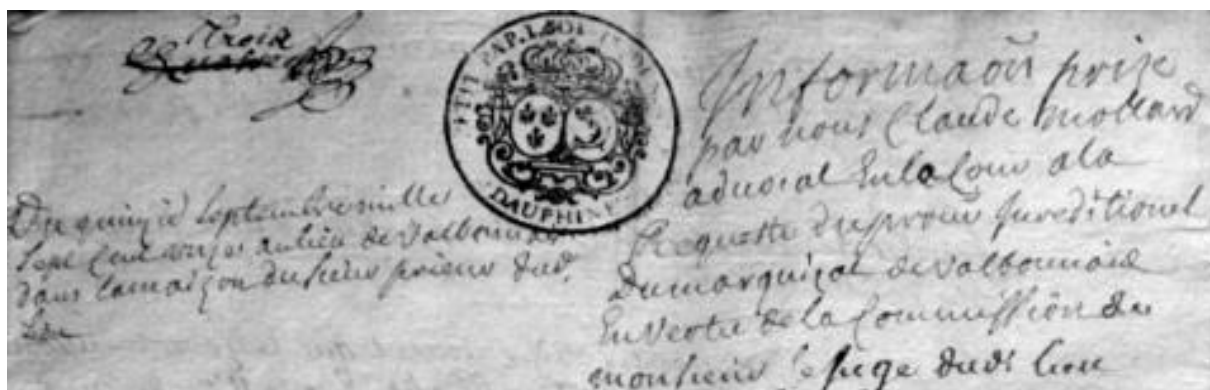 Trois
DAUPHINE
Du quinzie Septembre mille
Sept Cent onze au lieu de Valbonnais
dans lamaison du sieur prieur dud.
Lieu
Informaōn prise
par nous Claude mollard
aduocat En la Cour ala
Requeste du procur Jurisditionel
Dumarquisat de Valbonnais
En Vertu de la Commission de
monsieur le Juge dudt lieu